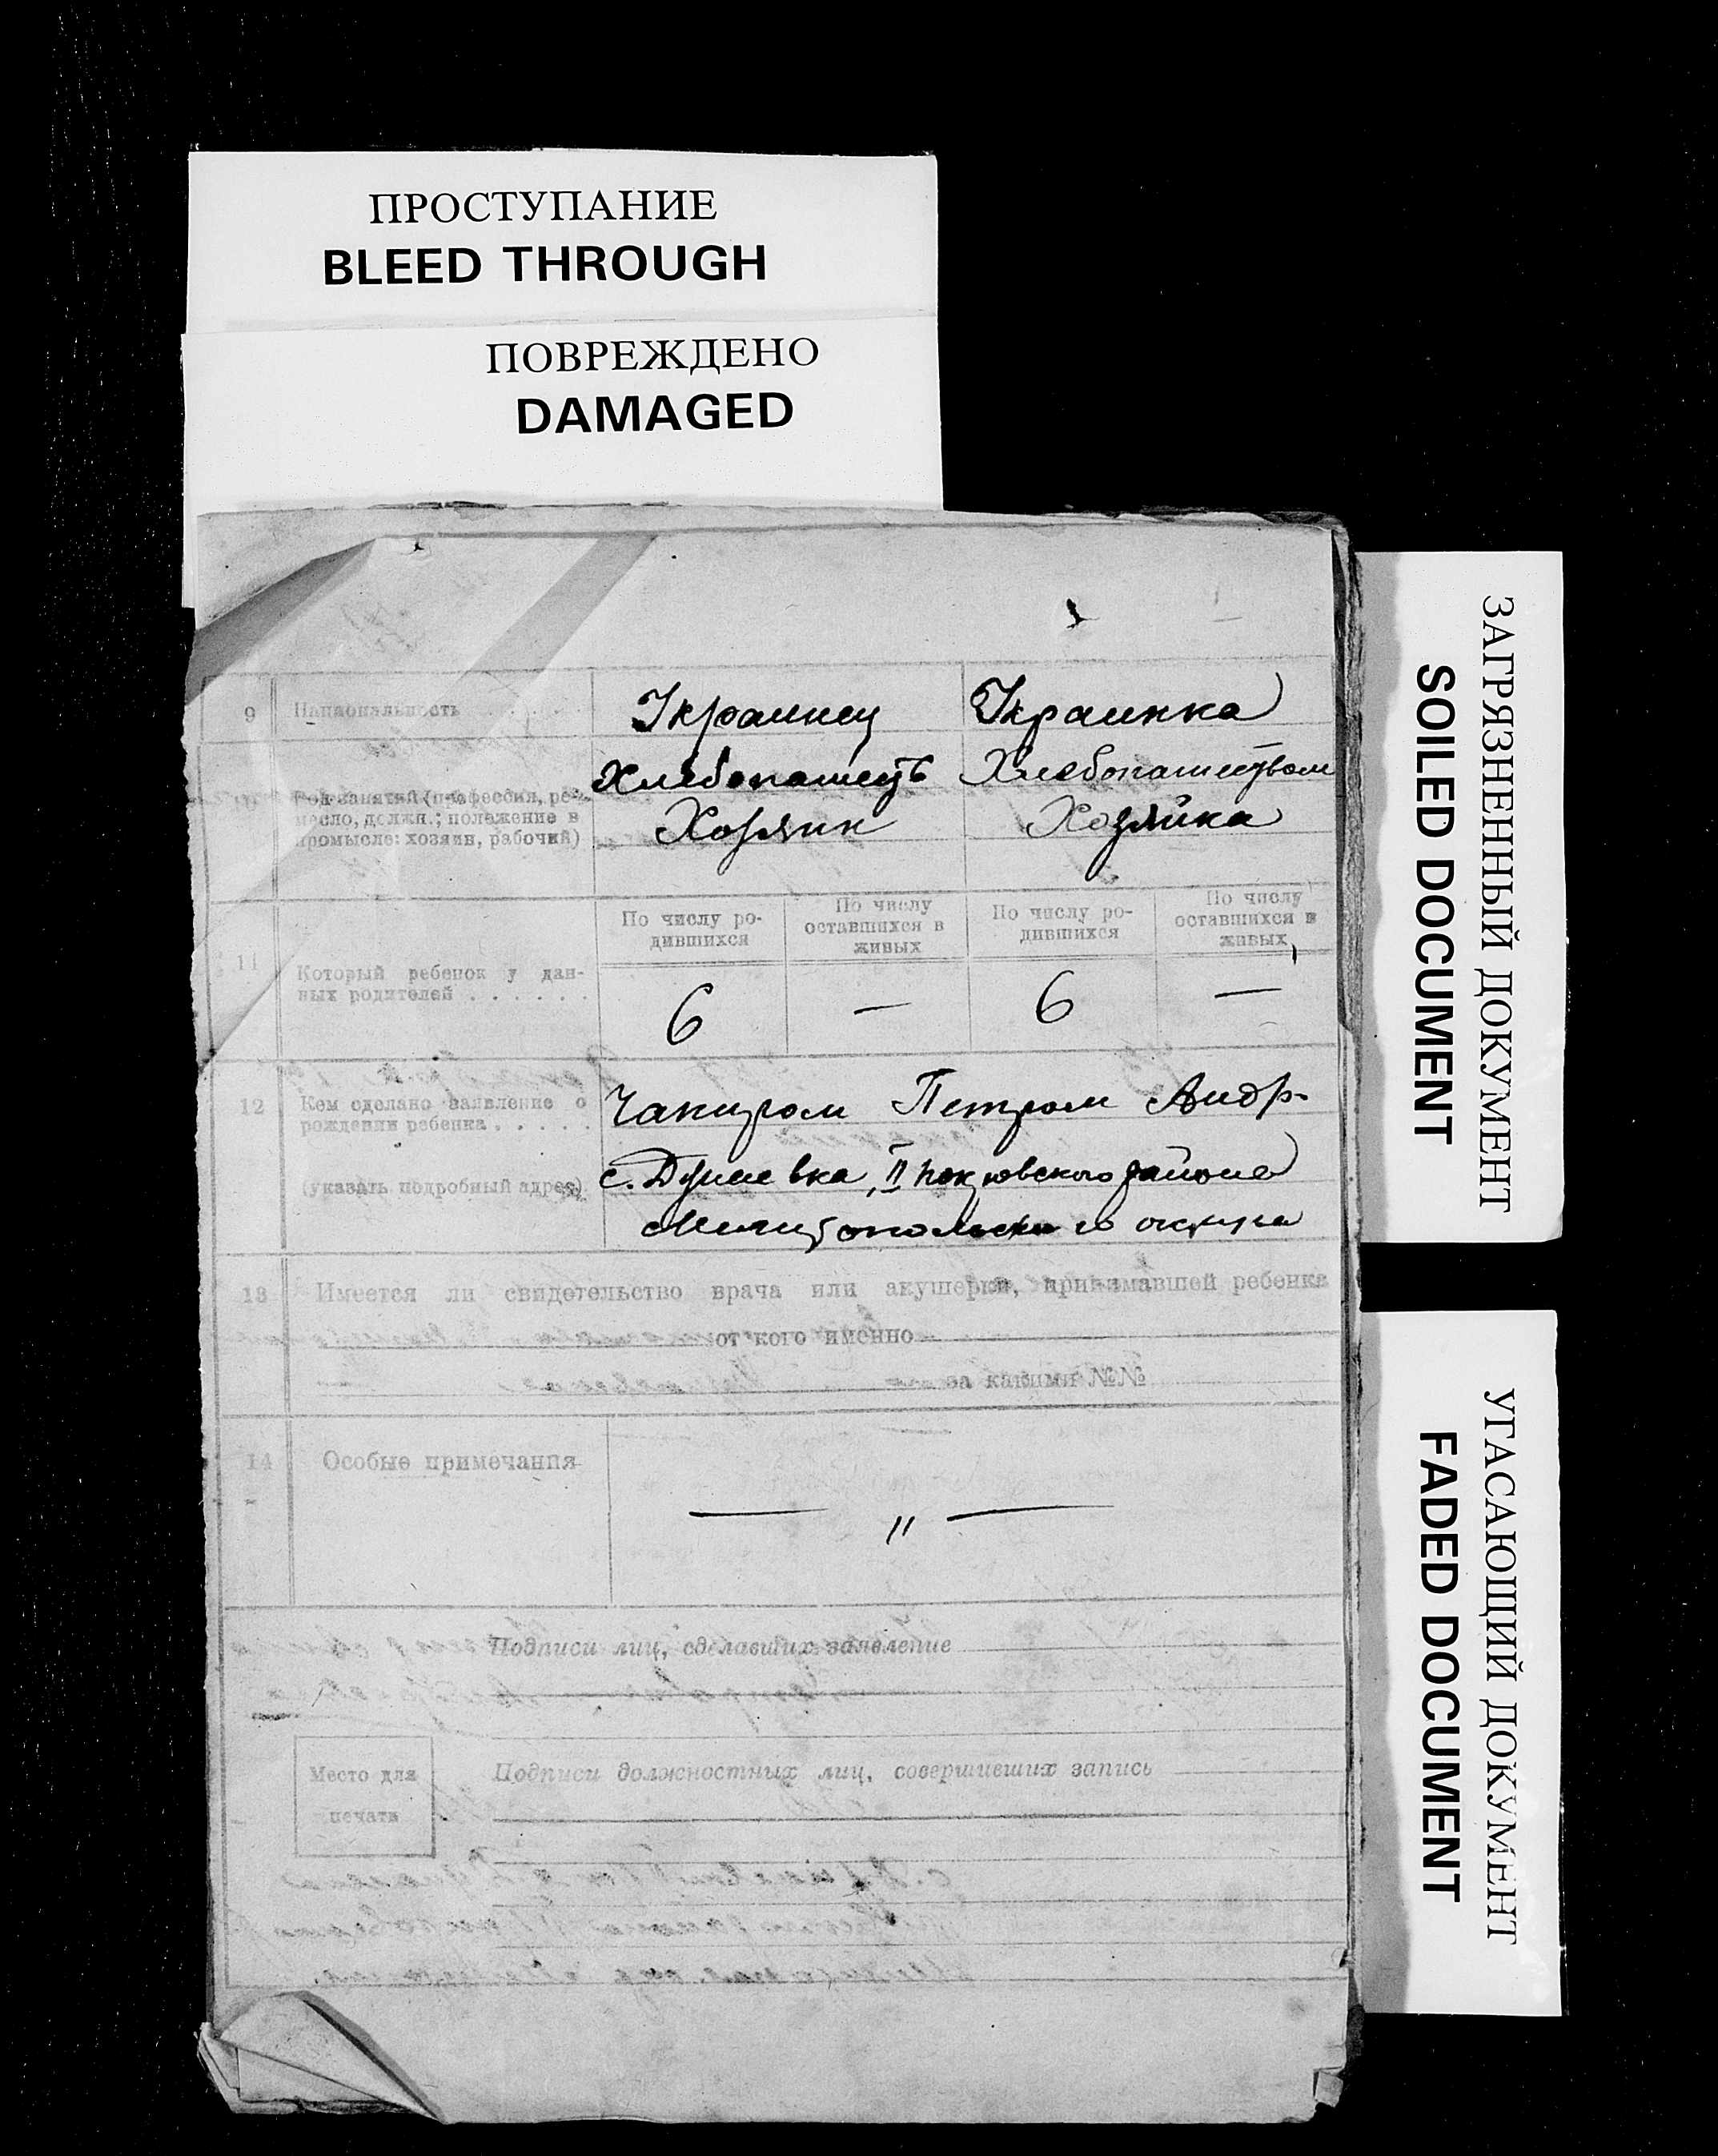 ПРОСТУПАНИЕ
BLEED THROUGH
ПОВРЕЖДЕНО
DAMAGED
ЗАГРЯЗНЕННЫЙ ДОКУМЕНТ
SOILED DOCUMENT
УГАСАЮЩИЙ ДОКУМЕНТ
FADED DOCUMENT
9 Национальность Украинец Украинка
Род занятий (профессия, ре- Хлебопашец Хлебопашеством
месло, должн.; положение в
промысле: хозяин, рабочий) Хозяин Хозяйка
По числу ро-
дившихся
По числу
оставшихся в
живых
По числу ро-
дившихся
По числу
оставшихся в
живых
11 Который ребенок у дан-
ных родителей . . . . . . 6 — 6 —
12 Кем сделано заявление о
рождении ребенка . . . . . Петром Андр.
(указать подробный адрес) с. II Покровского района
Мелитопольского округа
13 Имеется ли свидетельство врача или акушерки, принимавшей ребенка
от кого именно
за какими №№
14 Особые примечания — " —
Подписи лиц, сделавших заявление
Место для
печати
Подписи должностных лиц, совершивших запись